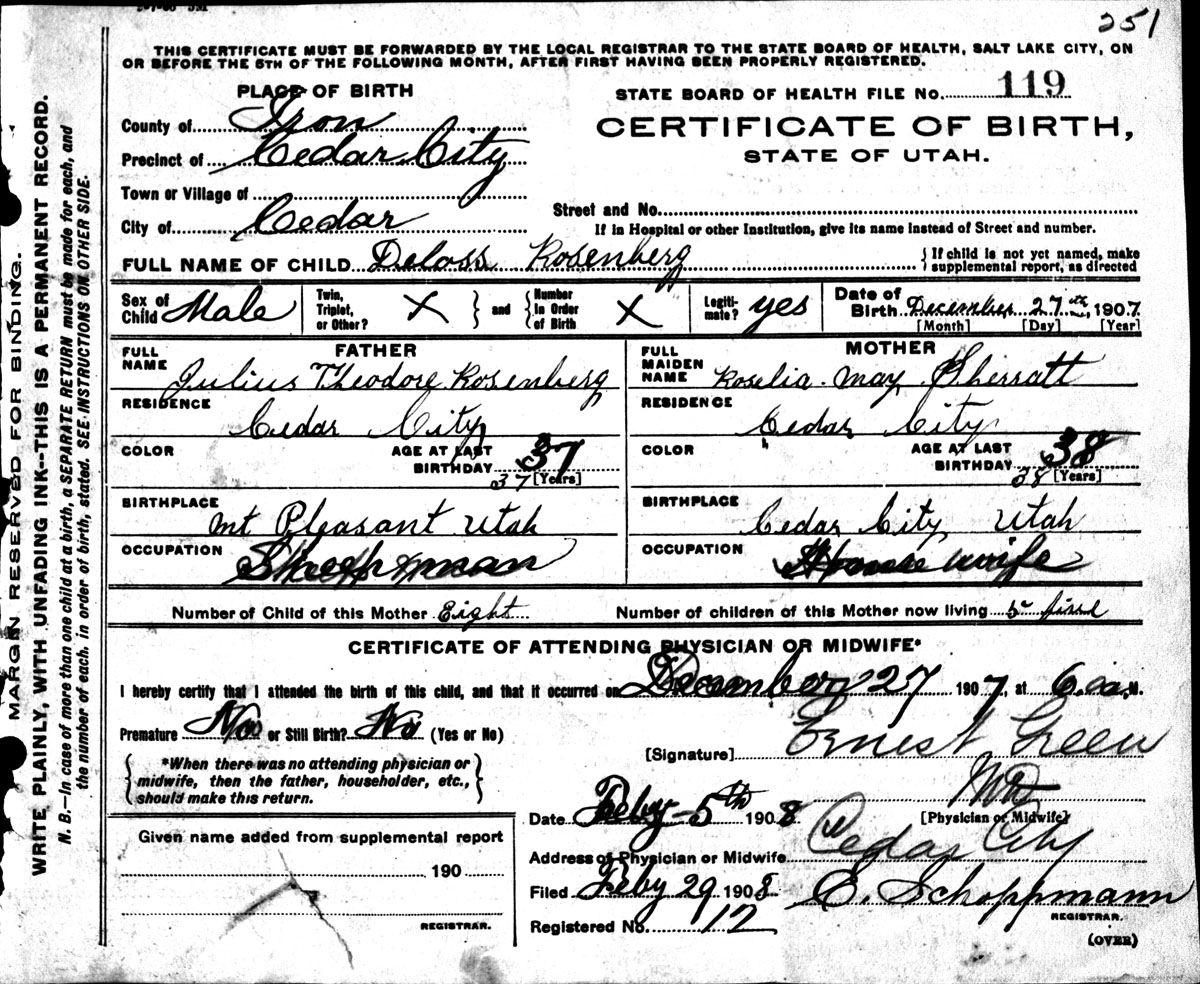 251
THIS CERTIFICATE MUST BE FORWARDED BY THE LOCAL REGISTRAR TO THE STATE BOARD OF HEALTH, SALT LAKE CITY, ON
OR BEFORE THE 5TH OF THE FOLLOWING MONTH, AFTER FIRST HAVING BEEN PROPERLY REGISTERED.
PLACE OF BIRTH
County of Iron
Precinct of Cedar City
Town or Village of
City of Cedar
STATE BOARD OF HEALTH FILE No. 119
CERTIFICATE OF BIRTH,
STATE OF UTAH.
Street and No.
If in Hospital or other Institution, give its name instead of Street and number.
FULL NAME OF CHILD Deloss Rosenberg { If child is not yet named, make
supplemental report, as directed
Sex of Child Male
Twin, Triplet, or Other? X } and { Number In Order of Birth X
Legiti-mate? yes
Date of Birth December 27th, 1907
[Month] [Day] [Year]
FATHER
FULL NAME Julius Theodore Rosenberg
RESIDENCE
Cedar City
COLOR AGE AT LAST BIRTHDAY 37
37 [Years]
BIRTHPLACE
Mt Pleasant Utah
OCCUPATION
Sheepman
MOTHER
FULL MAIDEN NAME Roselia May Sherratt
RESIDENCE
Cedar City
COLOR AGE AT LAST BIRTHDAY 38
38 [Years]
BIRTHPLACE
Cedar City, Utah
OCCUPATION
House wife
Number of Child of this Mother Eight Number of children of this Mother now living 5
CERTIFICATE OF ATTENDING PHYSICIAN OR MIDWIFE*
I hereby certify that I attended the birth of this child, and that it occurred on December 27 1907, at 6. a. M.
Premature No or Still Birth? No (Yes or No)
[Signature] Ernest Green
*When there was no attending physician or
midwife, then the father, householder, etc.,
should make this return.
MD
[Physician or Midwife]
Date Feby 5th 1908
Address of Physician or Midwife Cedar City
Filed Feby 29 1908 E. Schoppmann
REGISTRAR.
Registered No. 17
(OVER)
Given name added from supplemental report
190
REGISTRAR.
MARGIN RESERVED FOR BINDING.
WRITE PLAINLY, WITH UNFADING INK--THIS IS A PERMANENT RECORD.
N. B.—In case of more than one child at a birth, a SEPARATE RETURN must be made for each, and
the number of each, in order of birth, stated. SEE INSTRUCTIONS ON OTHER SIDE.